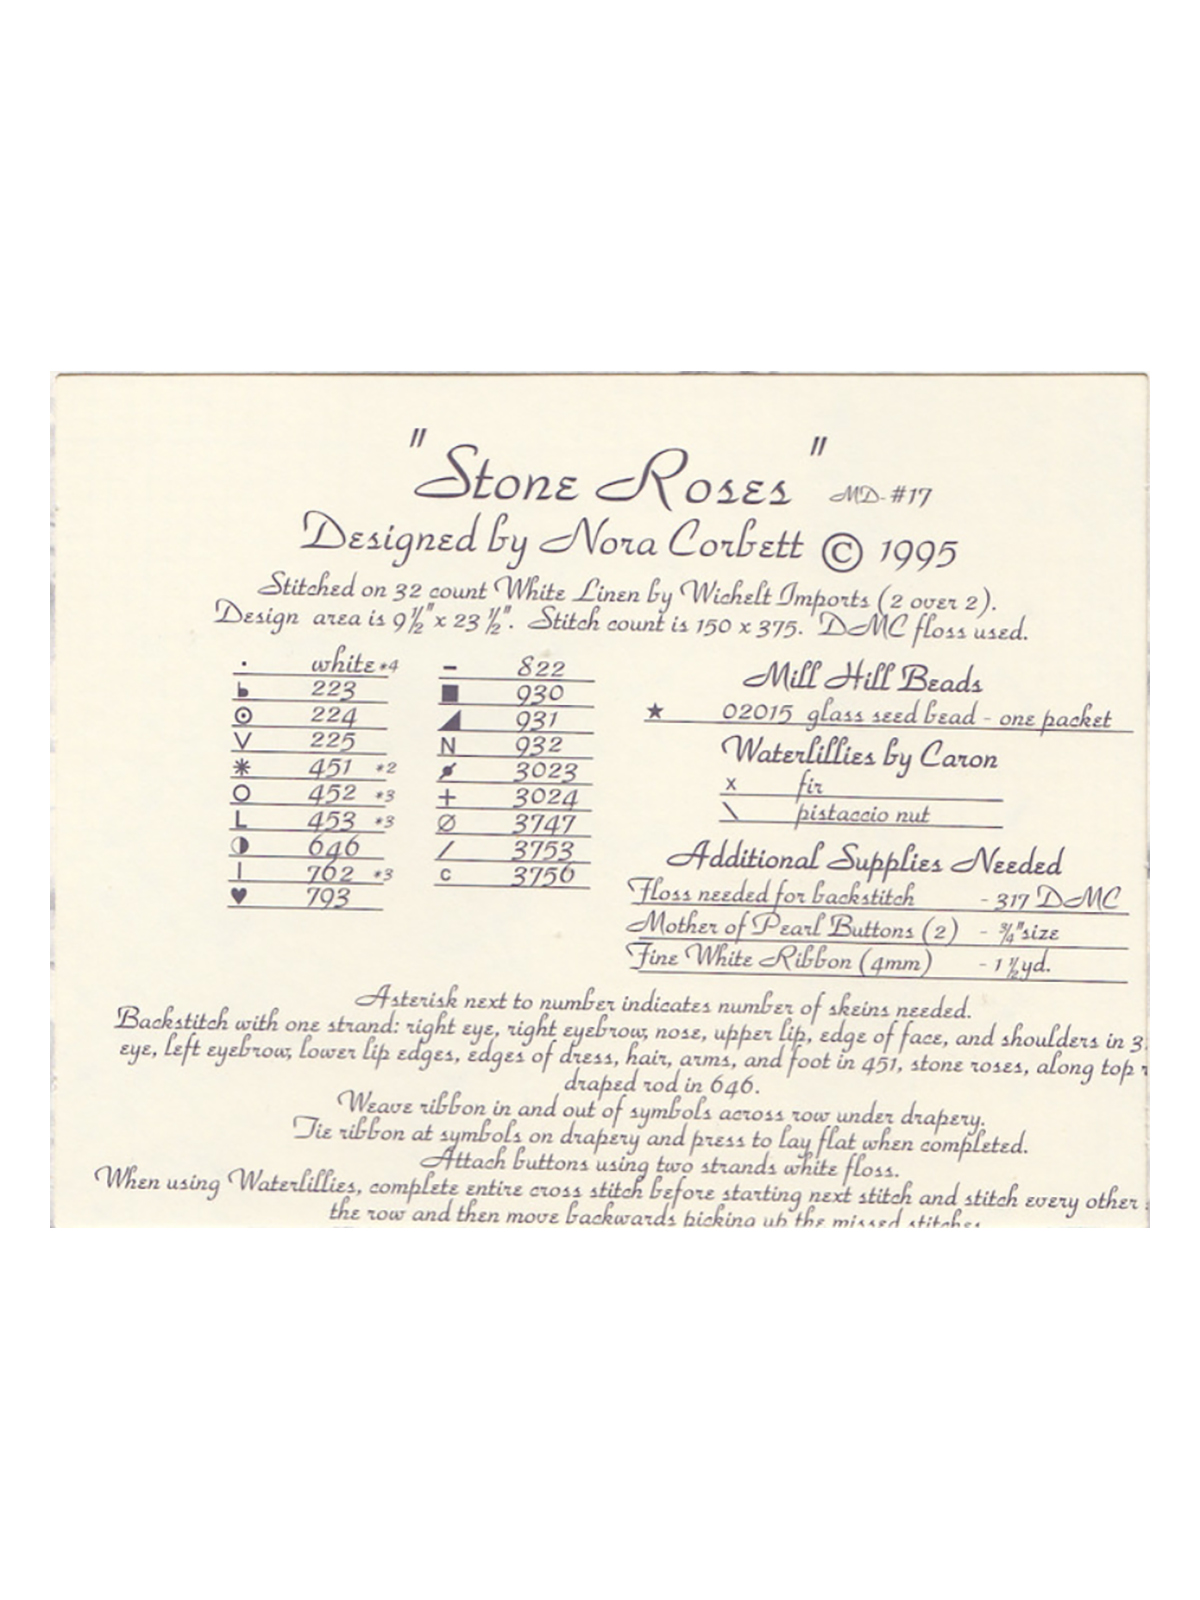 "Stone Roses" MD-#17
Designed by Nora Corbett © 1995
Stitched on 32 count White Linen by Wichelt Imports (2 over 2).
Design area is 9 1/2" x 23 1/2". Stitch count is 150 x 375. DMC floss used.
· white *4
♭ 223
⊙ 224
V 225
* 451 *2
O 452 *3
L 453 *3
◑ 646
| 762 *3
♥ 793
- 822
■ 930
◢ 931
N 932
3023
+ 3024
Ø 3747
/ 3753
c 3756
Mill Hill Beads
★ 02015 glass seed bead - one packet
Waterlillies by Caron
x fir
\ pistaccio nut
Additional Supplies Needed
Floss needed for backstitch - 317 DMC
Mother of Pearl Buttons (2) - 3/4" size
Fine White Ribbon (4mm) - 1 1/2 yd.
Asterisk next to number indicates number of skeins needed.
Backstitch with one strand: right eye, right eyebrow, nose, upper lip, edge of face, and shoulders in 3
eye, left eyebrow, lower lip edges, edges of dress, hair, arms, and foot in 451, stone roses, along top
draped rod in 646.
Weave ribbon in and out of symbols across row under drapery.
Tie ribbon at symbols on drapery and press to lay flat when completed.
Attach buttons using two strands white floss.
When using Waterlillies, complete entire cross stitch before starting next stitch and stitch every other
the row and then move backwards picking up the missed stitches